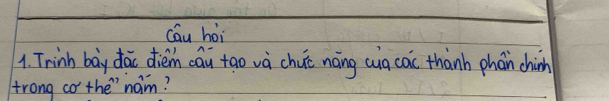 Câu hỏi
1. Trình bày đặc điểm cấu tạo và chức năng của các thành phần chính
trong cơ thể nấm?